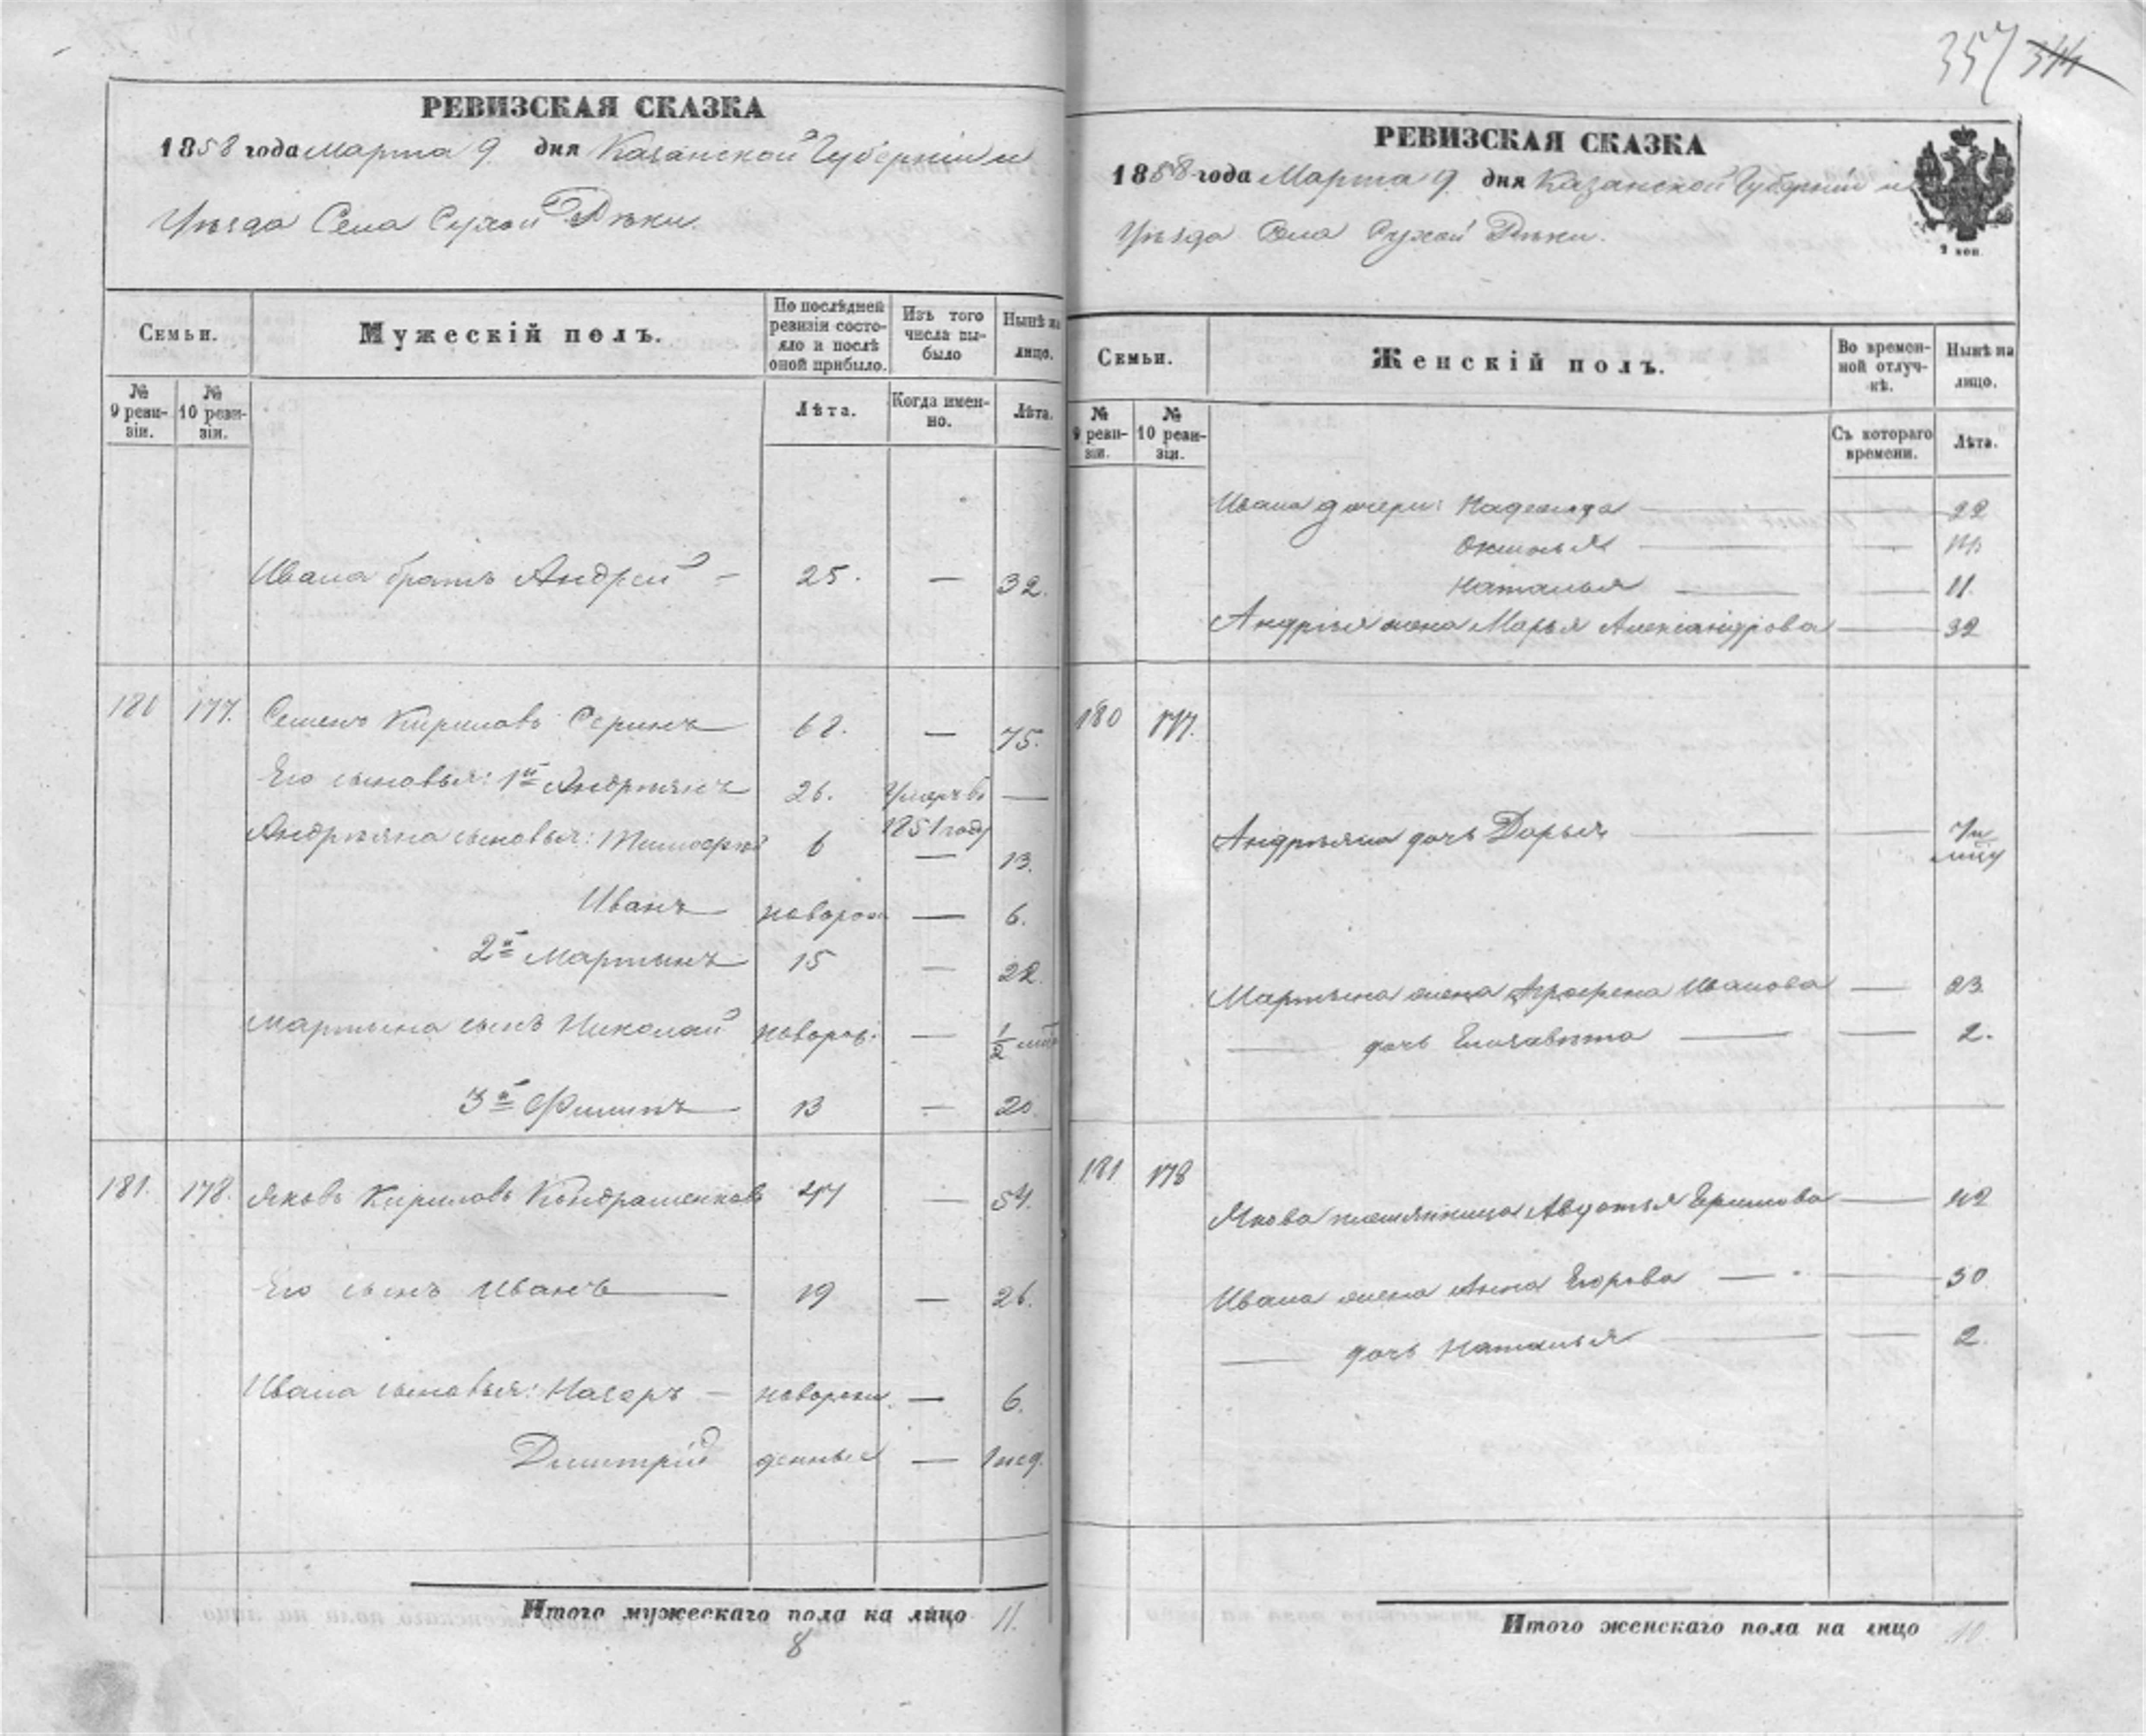 357 344
РЕВИЗСКАЯ СКАЗКА
1858 года Марта 9 дня Казанской Губерніи и
Уѣзда Села Сухой Рѣки.
Семьи.
Мужескій полъ.
По послѣдней ревизіи состояло и послѣ оной прибыло.
Изъ того числа выбыло
Нынѣ на лицо.
№ 9 ревизіи.
№ 10 ревизіи.
Лѣта.
Когда именно.
Лѣта.
Ивана братъ Андрей — 25. — 32.
180 177. Семенъ Кириловъ Серинъ 68. — 75.
Его сыновья: 1й Андріянъ 26. Умеръ въ 1851 году —
Андріяна сыновья: Тимофей 6 — 13.
Иванъ новорож — 6.
2й Мартынъ 15 — 22.
Мартына сынъ Николай новорож. — 1/2
3й Филипъ 13 — 20.
181. 178. Яковъ Кириловъ Кондрашенковъ 47 — 54.
Его сынъ Иванъ 19 — 26.
Ивана сыновья: Назаръ — новорож — 6.
Димитрій денные — 1 нед.
Итого мужескаго пола на лицо 11.
8
РЕВИЗСКАЯ СКАЗКА
1858 года Марта 9 дня Казанской Губерніи и
Уѣзда Села Сухой Рѣки.
2 коп.
Семьи.
Женскій полъ.
Во временной отлучкѣ.
Нынѣ на лицо.
№ 9 ревизіи.
№ 10 ревизіи.
Съ котораго времени.
Лѣта.
Ивана дочери: Надежда — 22
Оксинья —
Наталья — 11.
Андрѣя жена Марья Александрова — 32
180 177.
Андріяна дочь Дарья —
Мартына жена Агрофена Иванова — 23.
— дочь Елизавѣта — 2.
181 178
Якова племянница Авдотья Ефимова — 42
Ивана жена Анна Егорова — 30
— дочь Наталья — 2.
Итого женскаго пола на лицо 10.